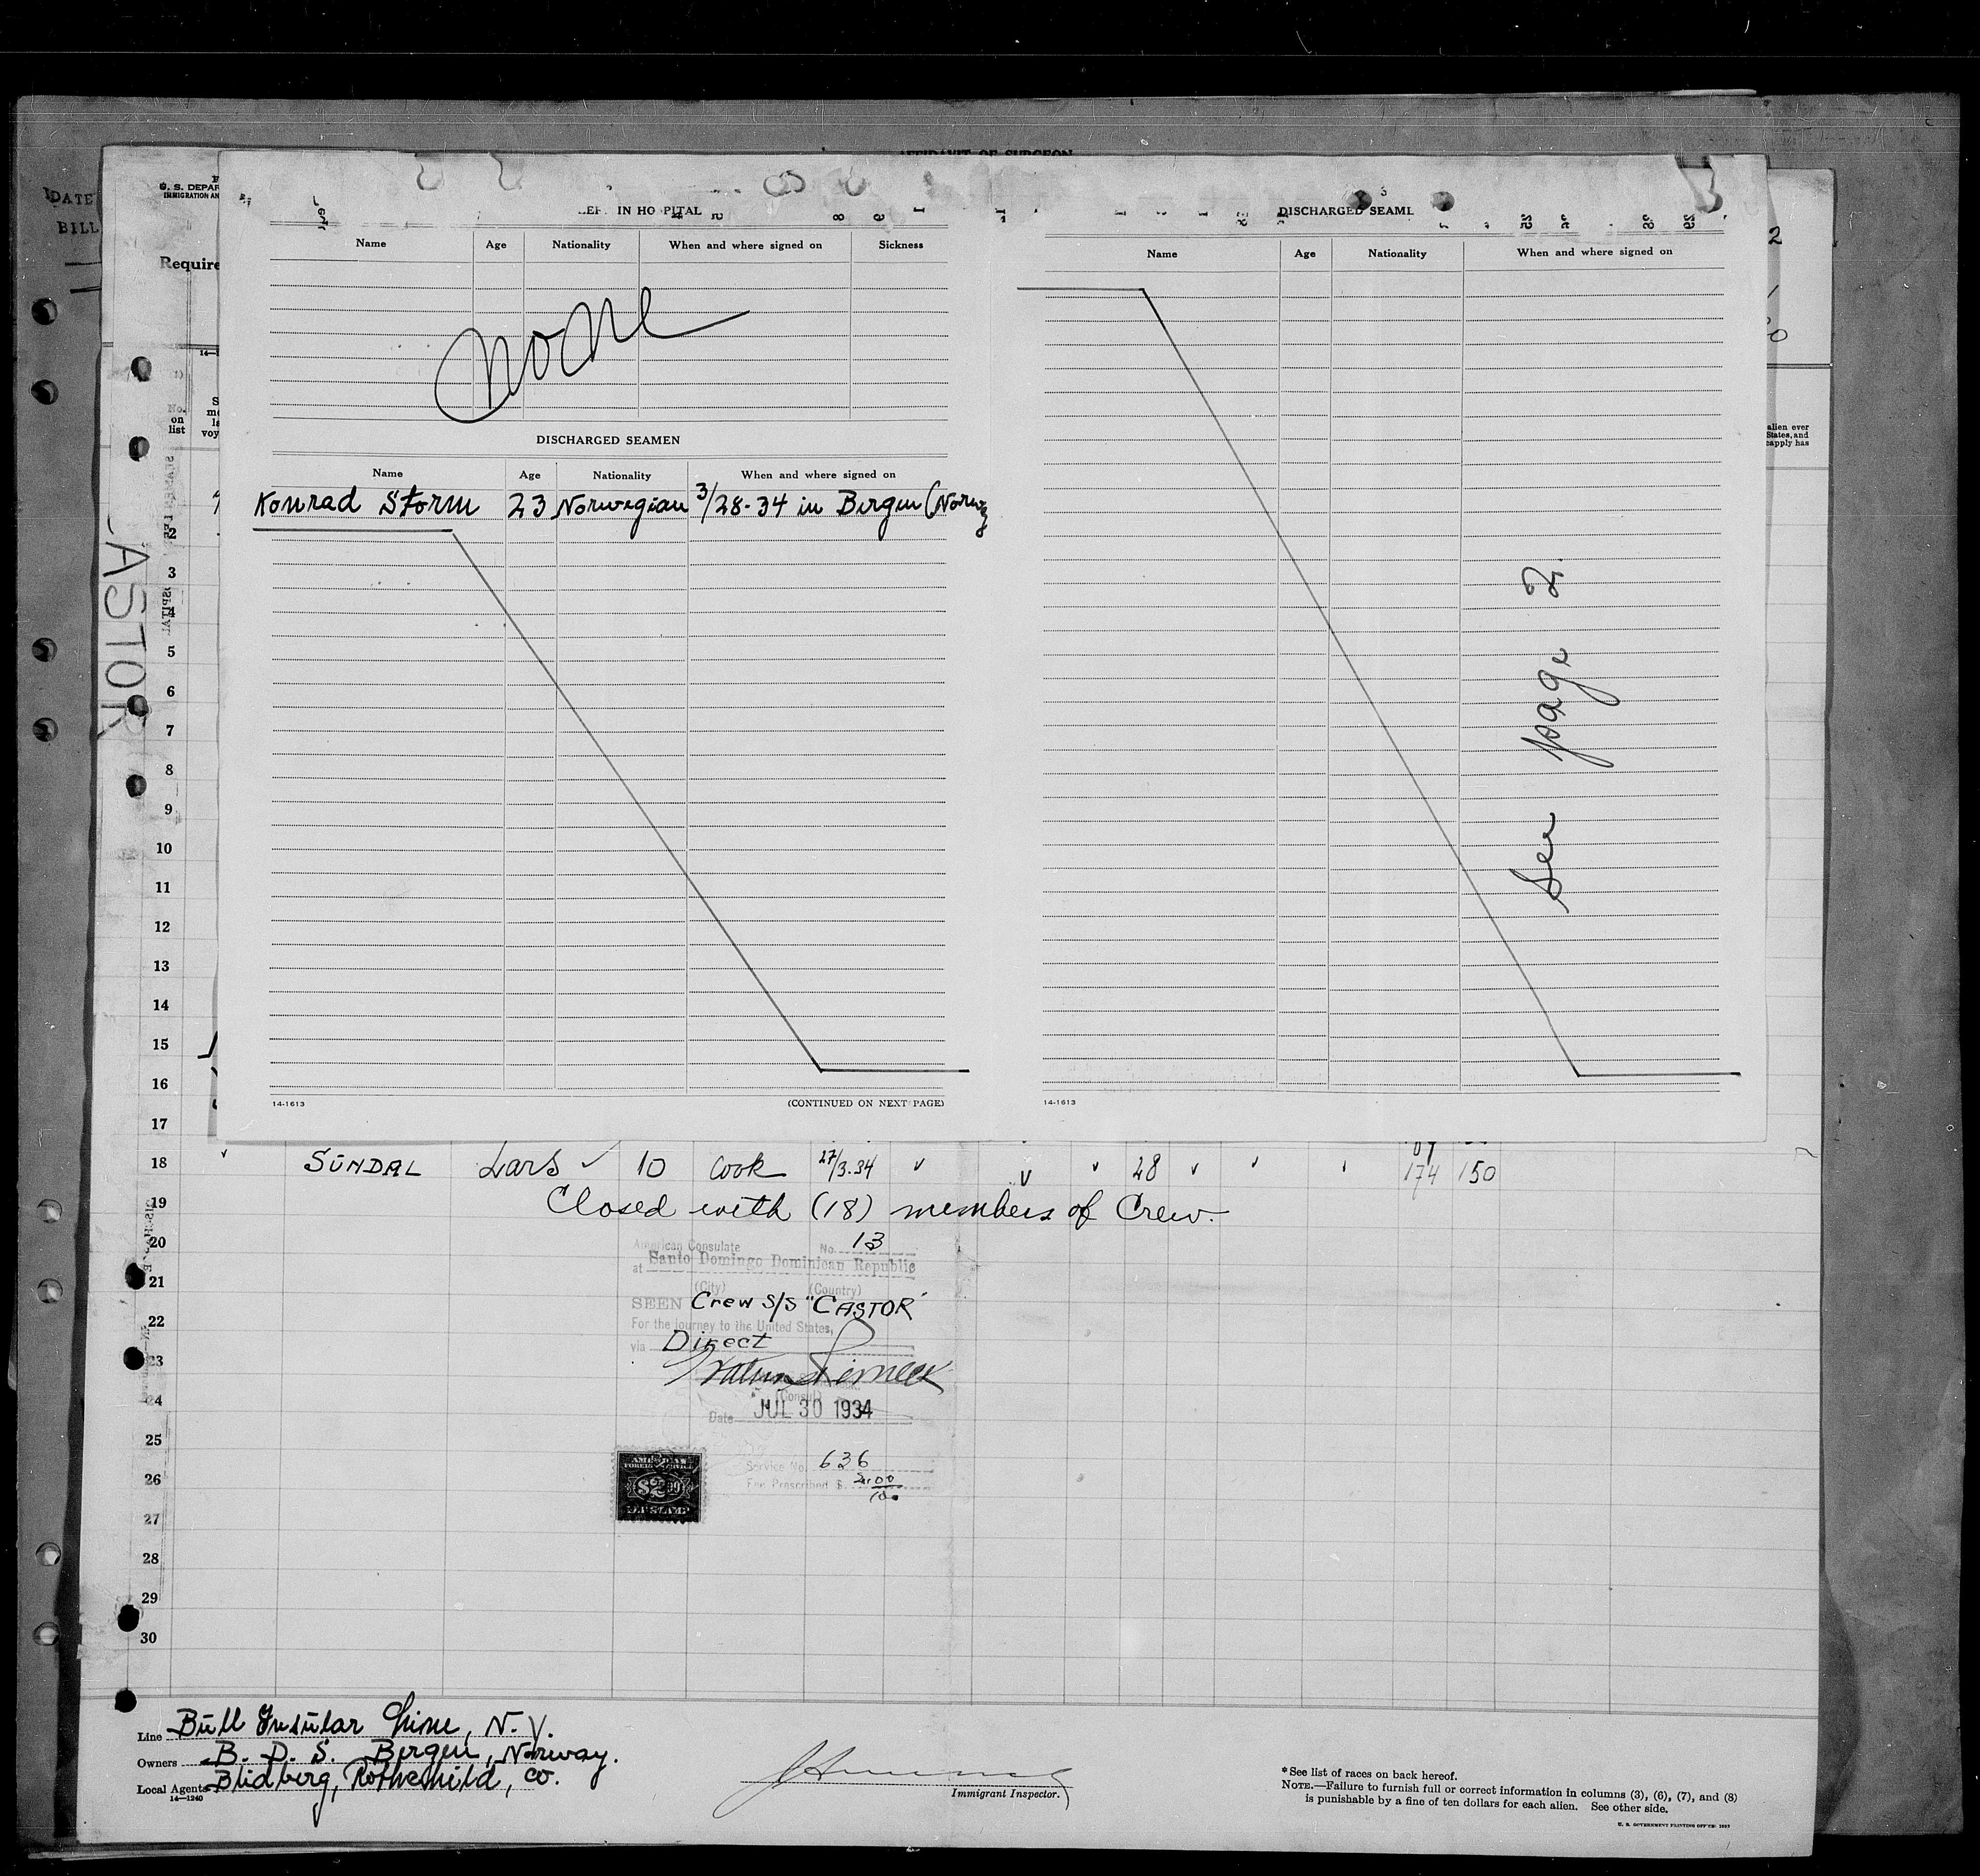 DATE
BILL
U. S. DEPAR
IMMIGRATION AN
Require
No.
on
list
CASTOR
LEFT IN HOSPITAL
Name Age Nationality When and where signed on Sickness
None
DISCHARGED SEAMEN
Name Age Nationality When and where signed on
Konrad Storm 23 Norwegian 3/28-34 in Bergen (Norway
14-1613 (CONTINUED ON NEXT PAGE)
3
DISCHARGED SEAME
Name Age Nationality When and where signed on
See page 2.
14-1613
alien ever
States, and
reapply has
2
3
4
5
6
7
8
9
10
11
12
13
14
15
16
17
18 SUNDAL Lars 10 Cook 27/3.34 28 174 150
19 Closed with (18) members of Crew.
20
21
22
23
24
25
26
27
28
29
30
American Consulate No. 13
at Santo Domingo Dominican Republic
(City) (Country)
SEEN Crew S/S "CASTOR"
For the journey to the United States,
via Direct
(Consul)
Date JUL 30 1934
Service No. 636
Fee Prescribed $ 2.00
AMERICAN
FOREIGN SERVICE
$2.00
FEE STAMP
Line Bull Insular Line, N.Y.
Owners B. D. S. Bergen, Norway.
Local Agents Blidberg, Rothchild, Co.
14-1240
Immigrant Inspector.
* See list of races on back hereof.
NOTE.—Failure to furnish full or correct information in columns (3), (6), (7), and (8)
is punishable by a fine of ten dollars for each alien. See other side.
U. S. GOVERNMENT PRINTING OFFICE